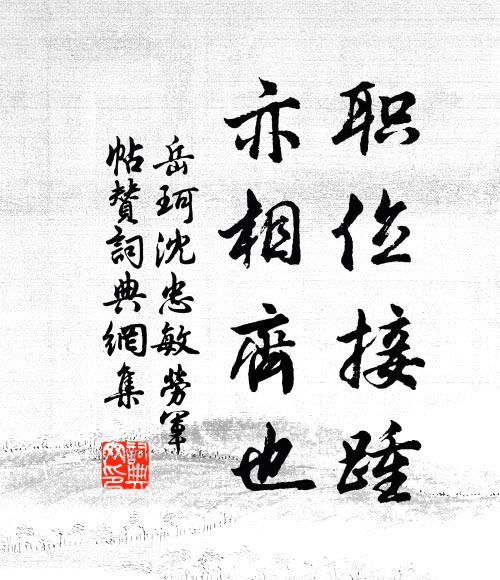 职位接踵
亦相齐也
岳珂沈忠敏劳军
帖赞詞典網集
詞典网印